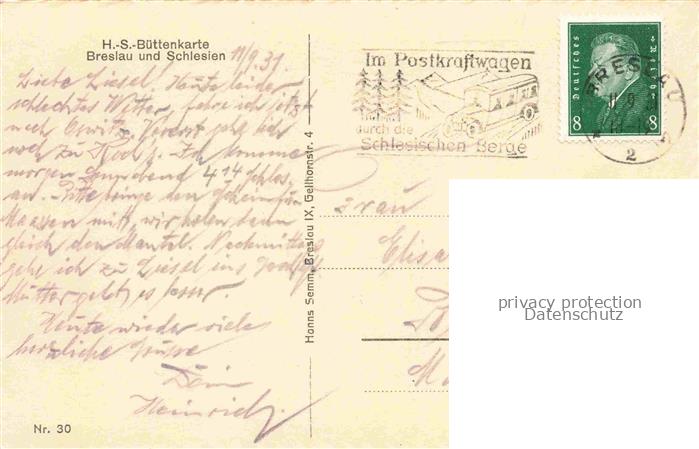 H.-S.-Büttenkarte
Breslau und Schlesien
11/9 31
Liebe Liesel, Heute leider
schlechtes Wetter, fahre ich jetzt
nach Oswitz. Vorerst gehe ich
noch zu Ich komme
morgen 414
an. Bitte bringe den
mit, wir holen dann
gleich den Mantel. Nachmittag
gehe ich zu Liesel ins
Mutter geht es besser.
Heute wieder viele
herzliche Grüsse
Dein
Heinrich.
Nr. 30
Hanns Semm, Breslau IX, Gellhornstr. 4
Im Postkraftwagen
durch die
Schlesischen Berge
Deutsches Reich
8 8
BRESLAU
2
Frau
Elisa
privacy protection
Datenschutz